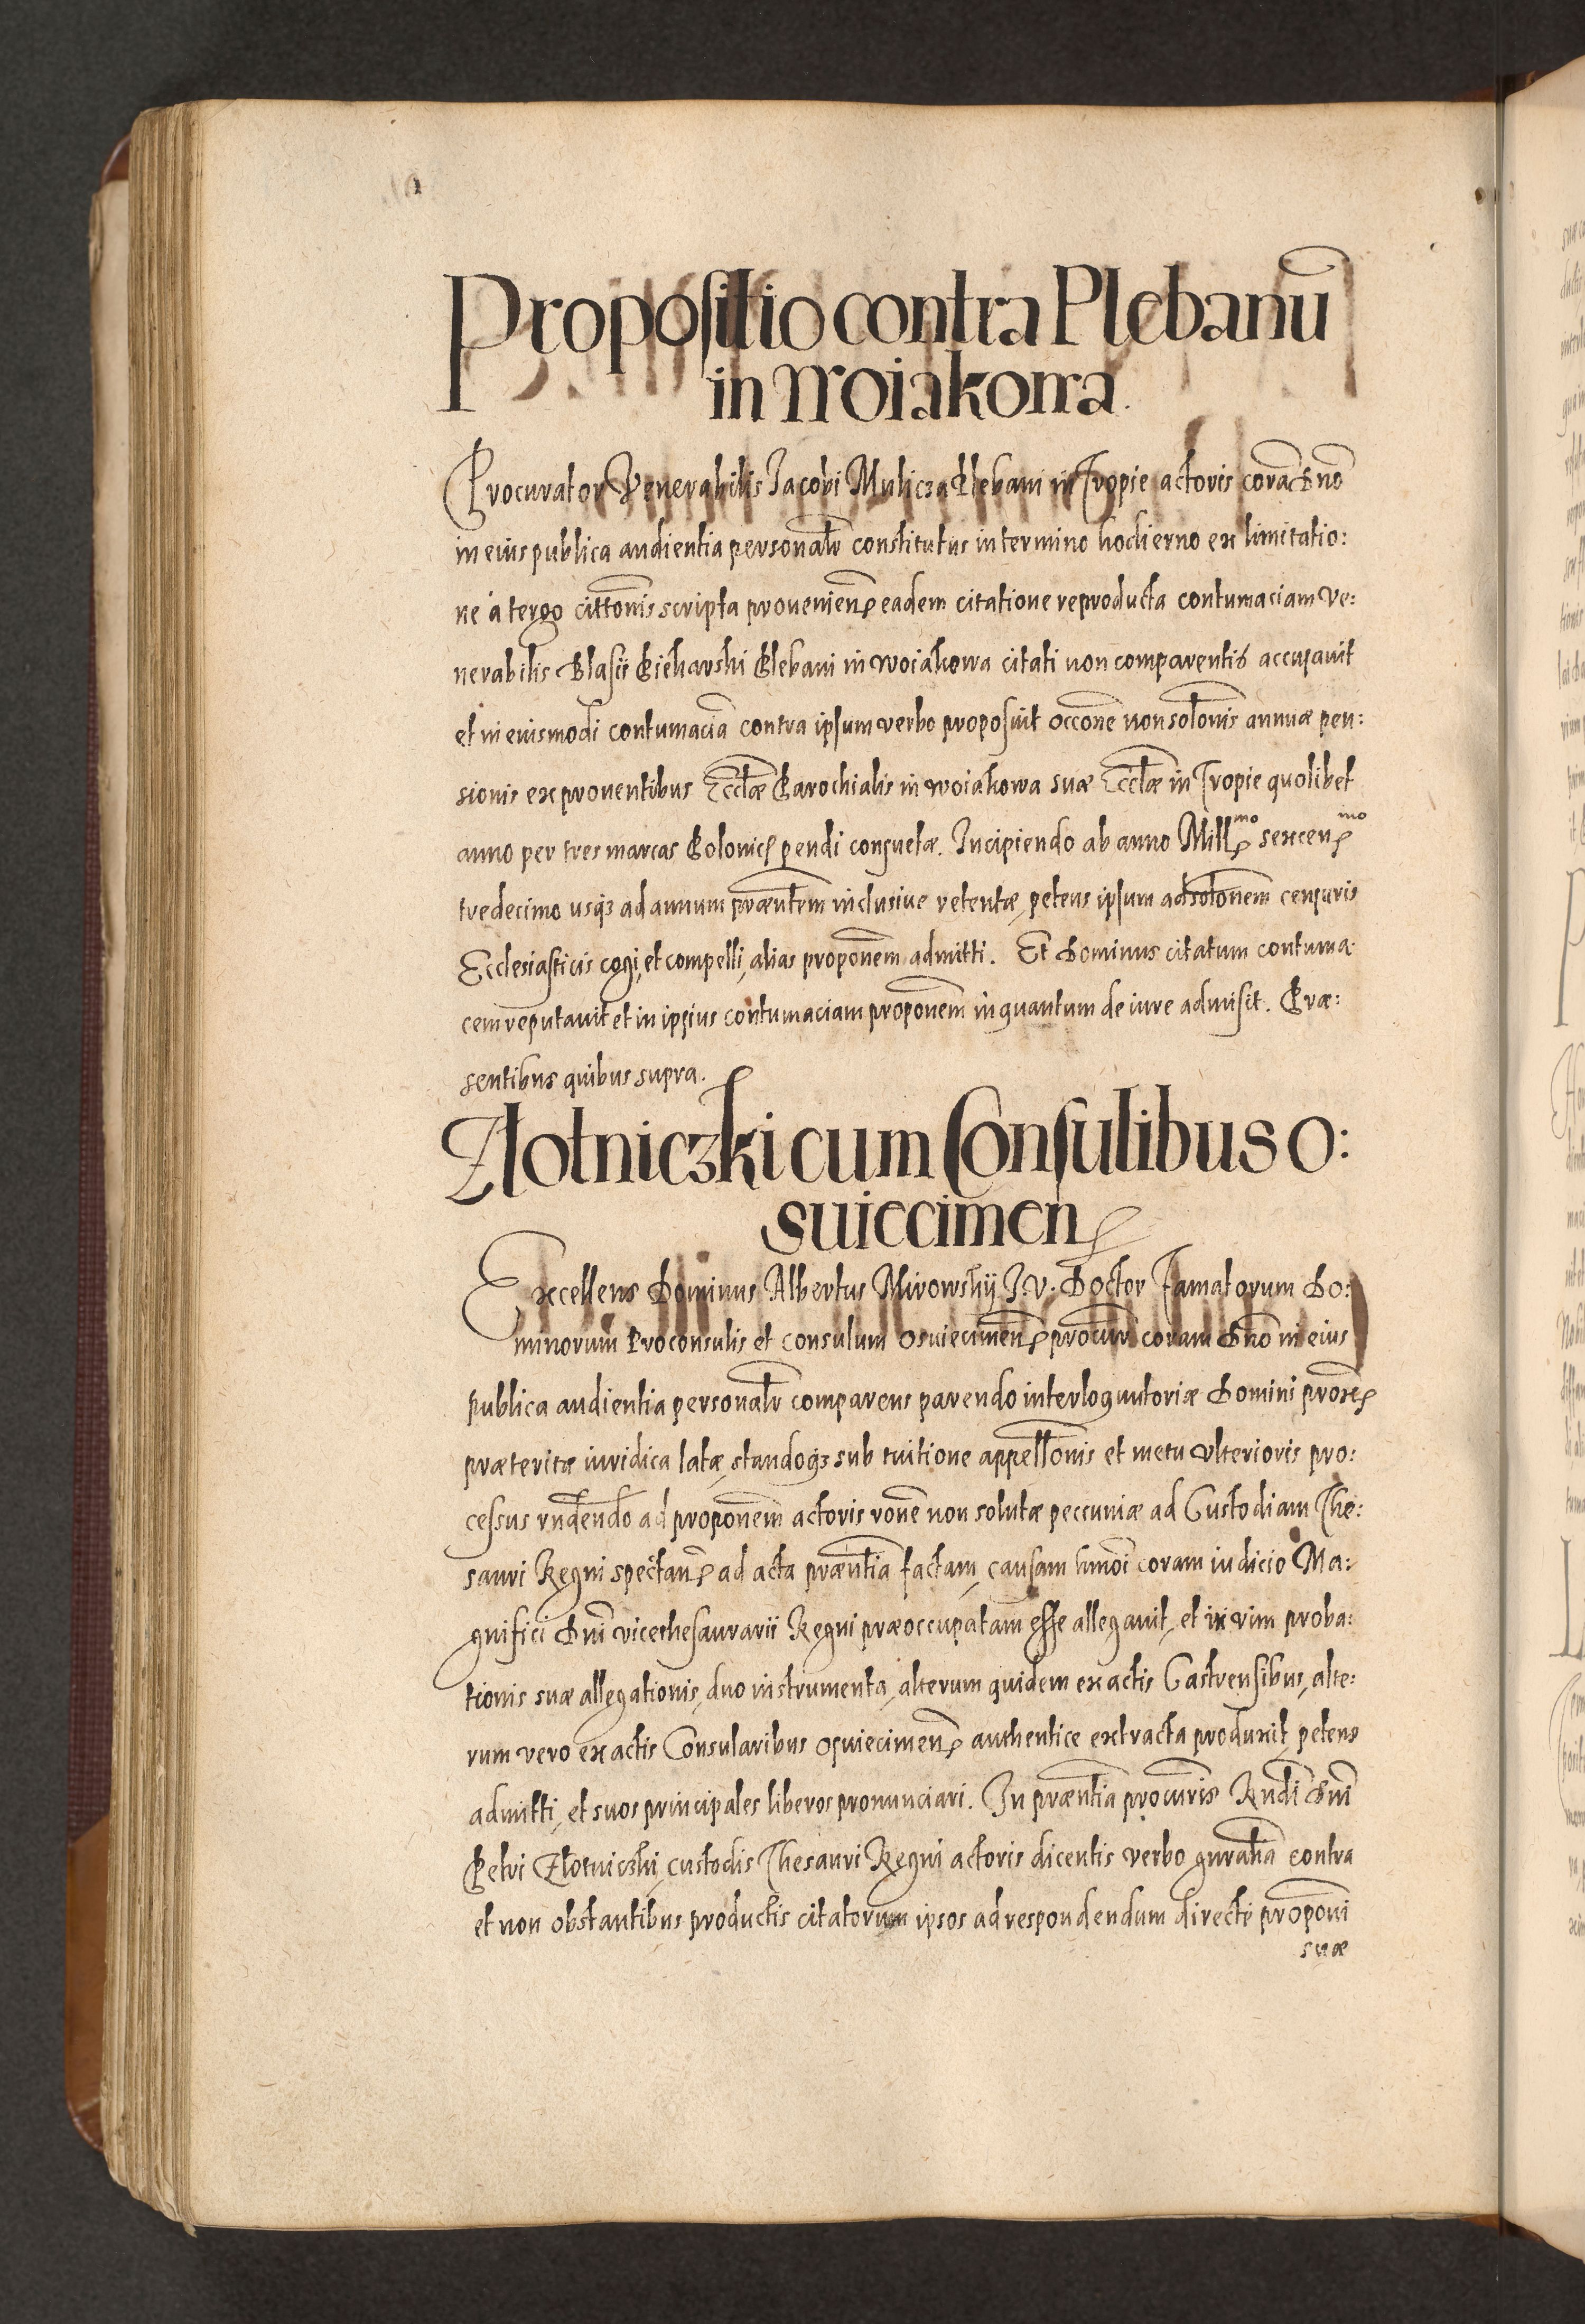 Propositio contra Plebanū
in Woiakowa.
Procurator Venerabilis Jacobi Mulicza Plebani in Tropie actoris corā Dno
in eius publica audientia personalr constitutus in termino hodierno ex limitatio:
ne à tergo cittonis scripta prouenien̄ eadem citatione reproducta contumaciam Ve:
nerabilis Blasii Piekarski Plebani in Woiakowa citati non comparentis accusauit
et in eiusmodi contumaciā contra ipsum verbo proposuit occone non solonis annuæ pen:
sionis ex prouentibus Ecclæ Parochialis in Woiakowa suæ Ecclæ in Tropie quolibet
anno per tres marcas Polonic̄ pendi consuetæ. Incipiendo ab anno Mill̄mo sexcen̄mo
tredecimo usq3 ad annum præntem inclusiue retentæ, petens ipsum ad solonem censuris
Ecclesiasticis cogi, et compelli, alias proponem admitti. Et Dominus citatum contuma
cem reputauit et in ipsius contumaciam proponem in quantum de iure admisit. Præ:
sentibus quibus supra.
Zlotniczki cum Consulibus O:
suiecimen̄
Excellens Dominus Albertus Mirowskij J. V. Doctor Famatorum Do:
minorum Proconsulis et consulum Osuiecimen̄ procur coram Dno in eius
publica audientia personalr comparens parendo interloquutoriæ Domini prox̄
præteritæ iuridica latæ, standoq3 sub tuitione appellonis et metu vlterioris pro:
cessus rndendo ad proponem actoris rone non solutæ peccuniæ ad Custodiam The:
sauri Regni spectan̄ ad acta præntia factam, causam hmoi coram iudicio Ma:
gnifici Dni vicethesaurarii Regni præoccupatam esse allegauit, et in vim proba:
tionis suæ allegationis, duo instrumenta, alterum quidem ex actis Castrensibus, alte:
rum vero ex actis Consularibus Osuiecimen̄ authentice extracta produxit, petens
admitti, et suos principales liberos pronunciari. In præntia procuris Rndi Dni
Petri Zlotniczki, custodis Thesauri Regni actoris dicentis verbo gnralia contra
et non obstantibus productis citatorum ipsos ad respondendum directe proponi
suæ